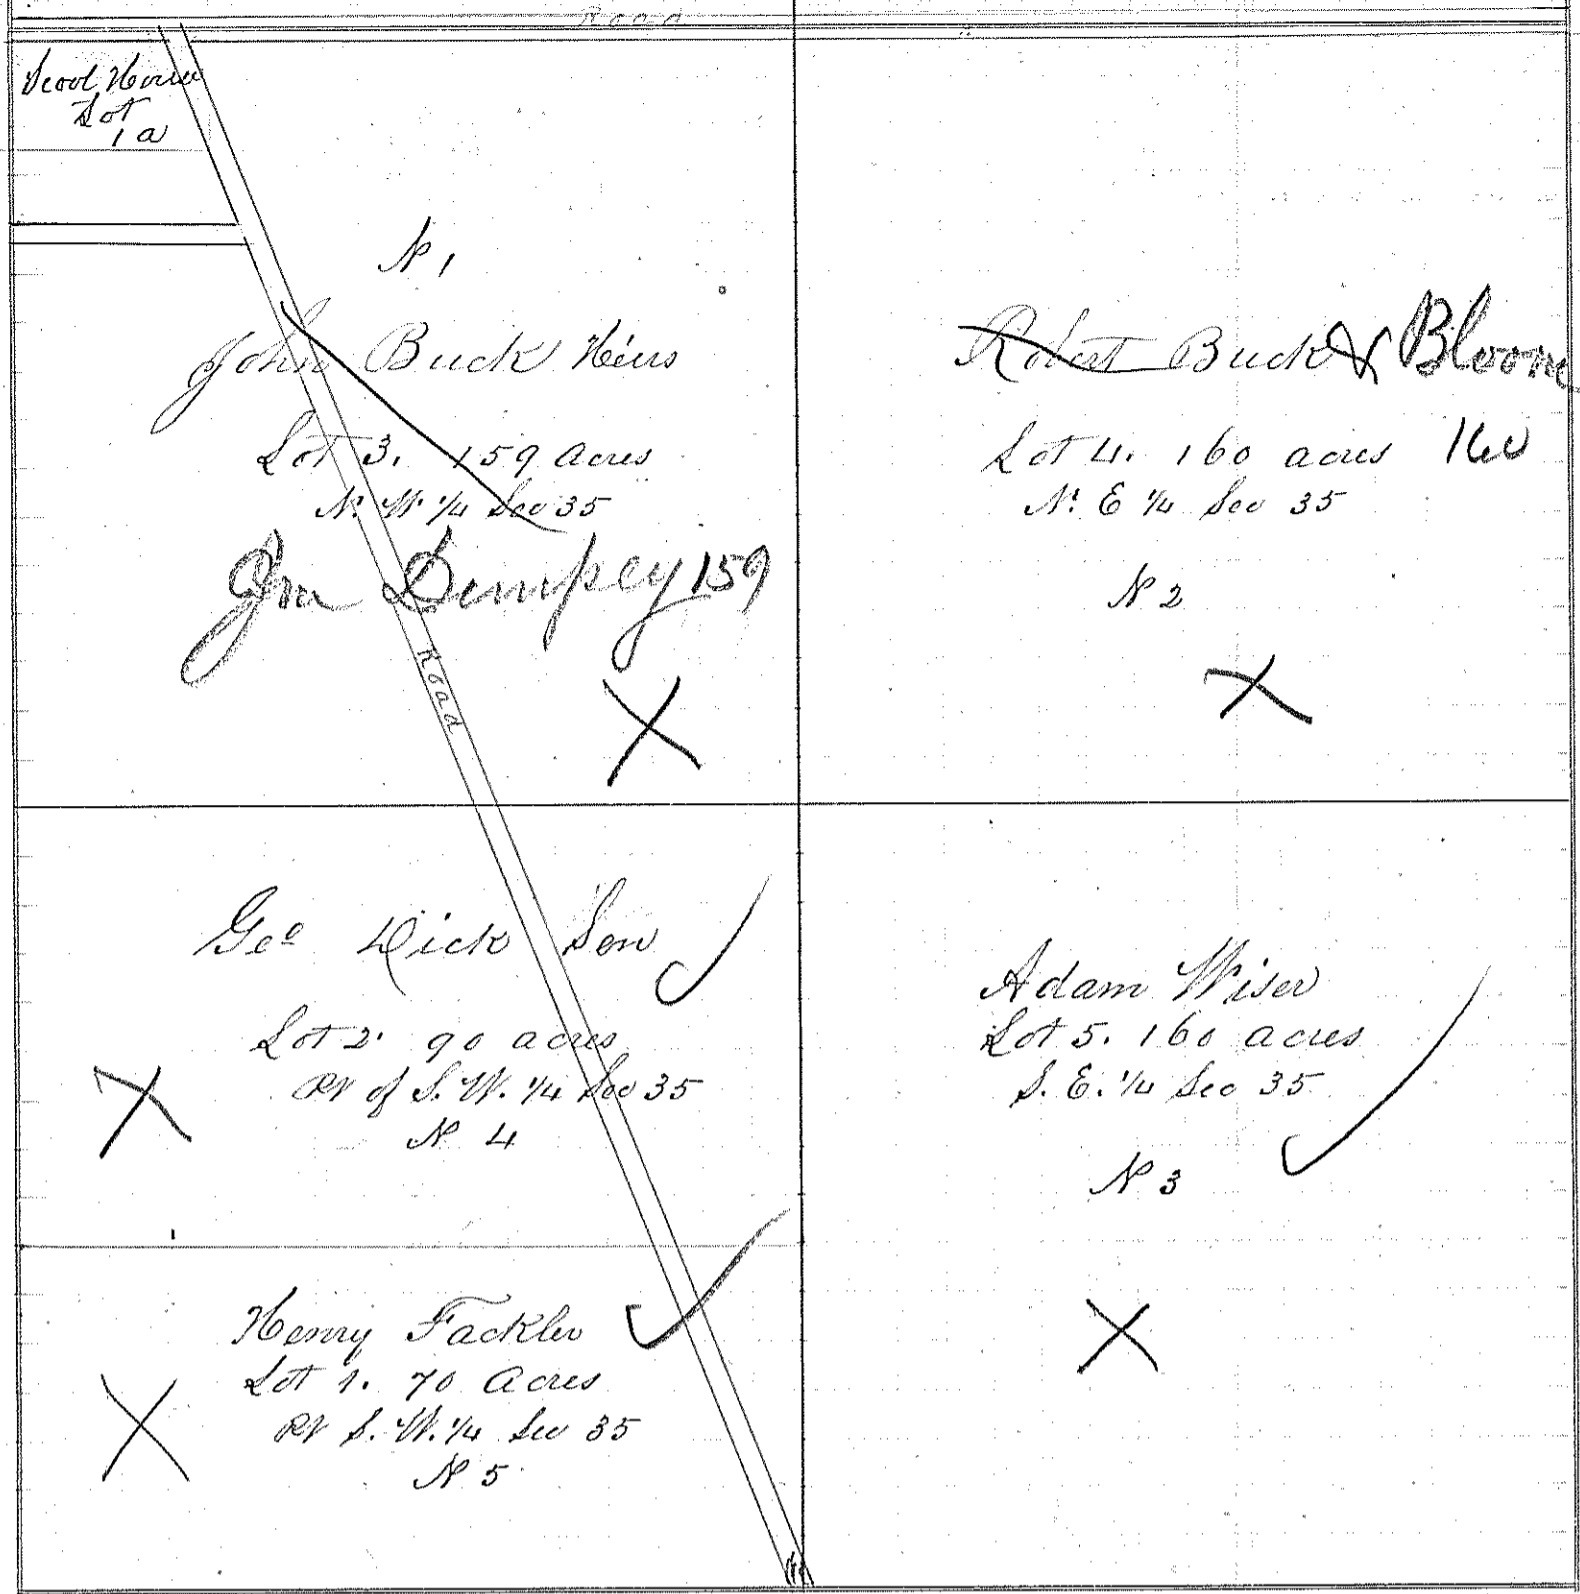 Road
Scool House
Lot
1 a
N 1
John Buck Heirs
Lot 3. 159 Acres
N. W. 1/4 Sec 35
Jno Dempsey 159
Road
Robert Buck & Bloom
Lot 4. 160 acres 160
N. E 1/4 Sec 35
N 2
Geo Dick Sen
Lot 2. 90 acres
Pt of S. W. 1/4 Sec 35
N 4
Adam Wiser
Lot 5. 160 acres
S. E. 1/4 Sec 35
N 3
Henry Fackler
Lot 1. 70 Acres
Pt S. W. 1/4 Sec 35
N 5